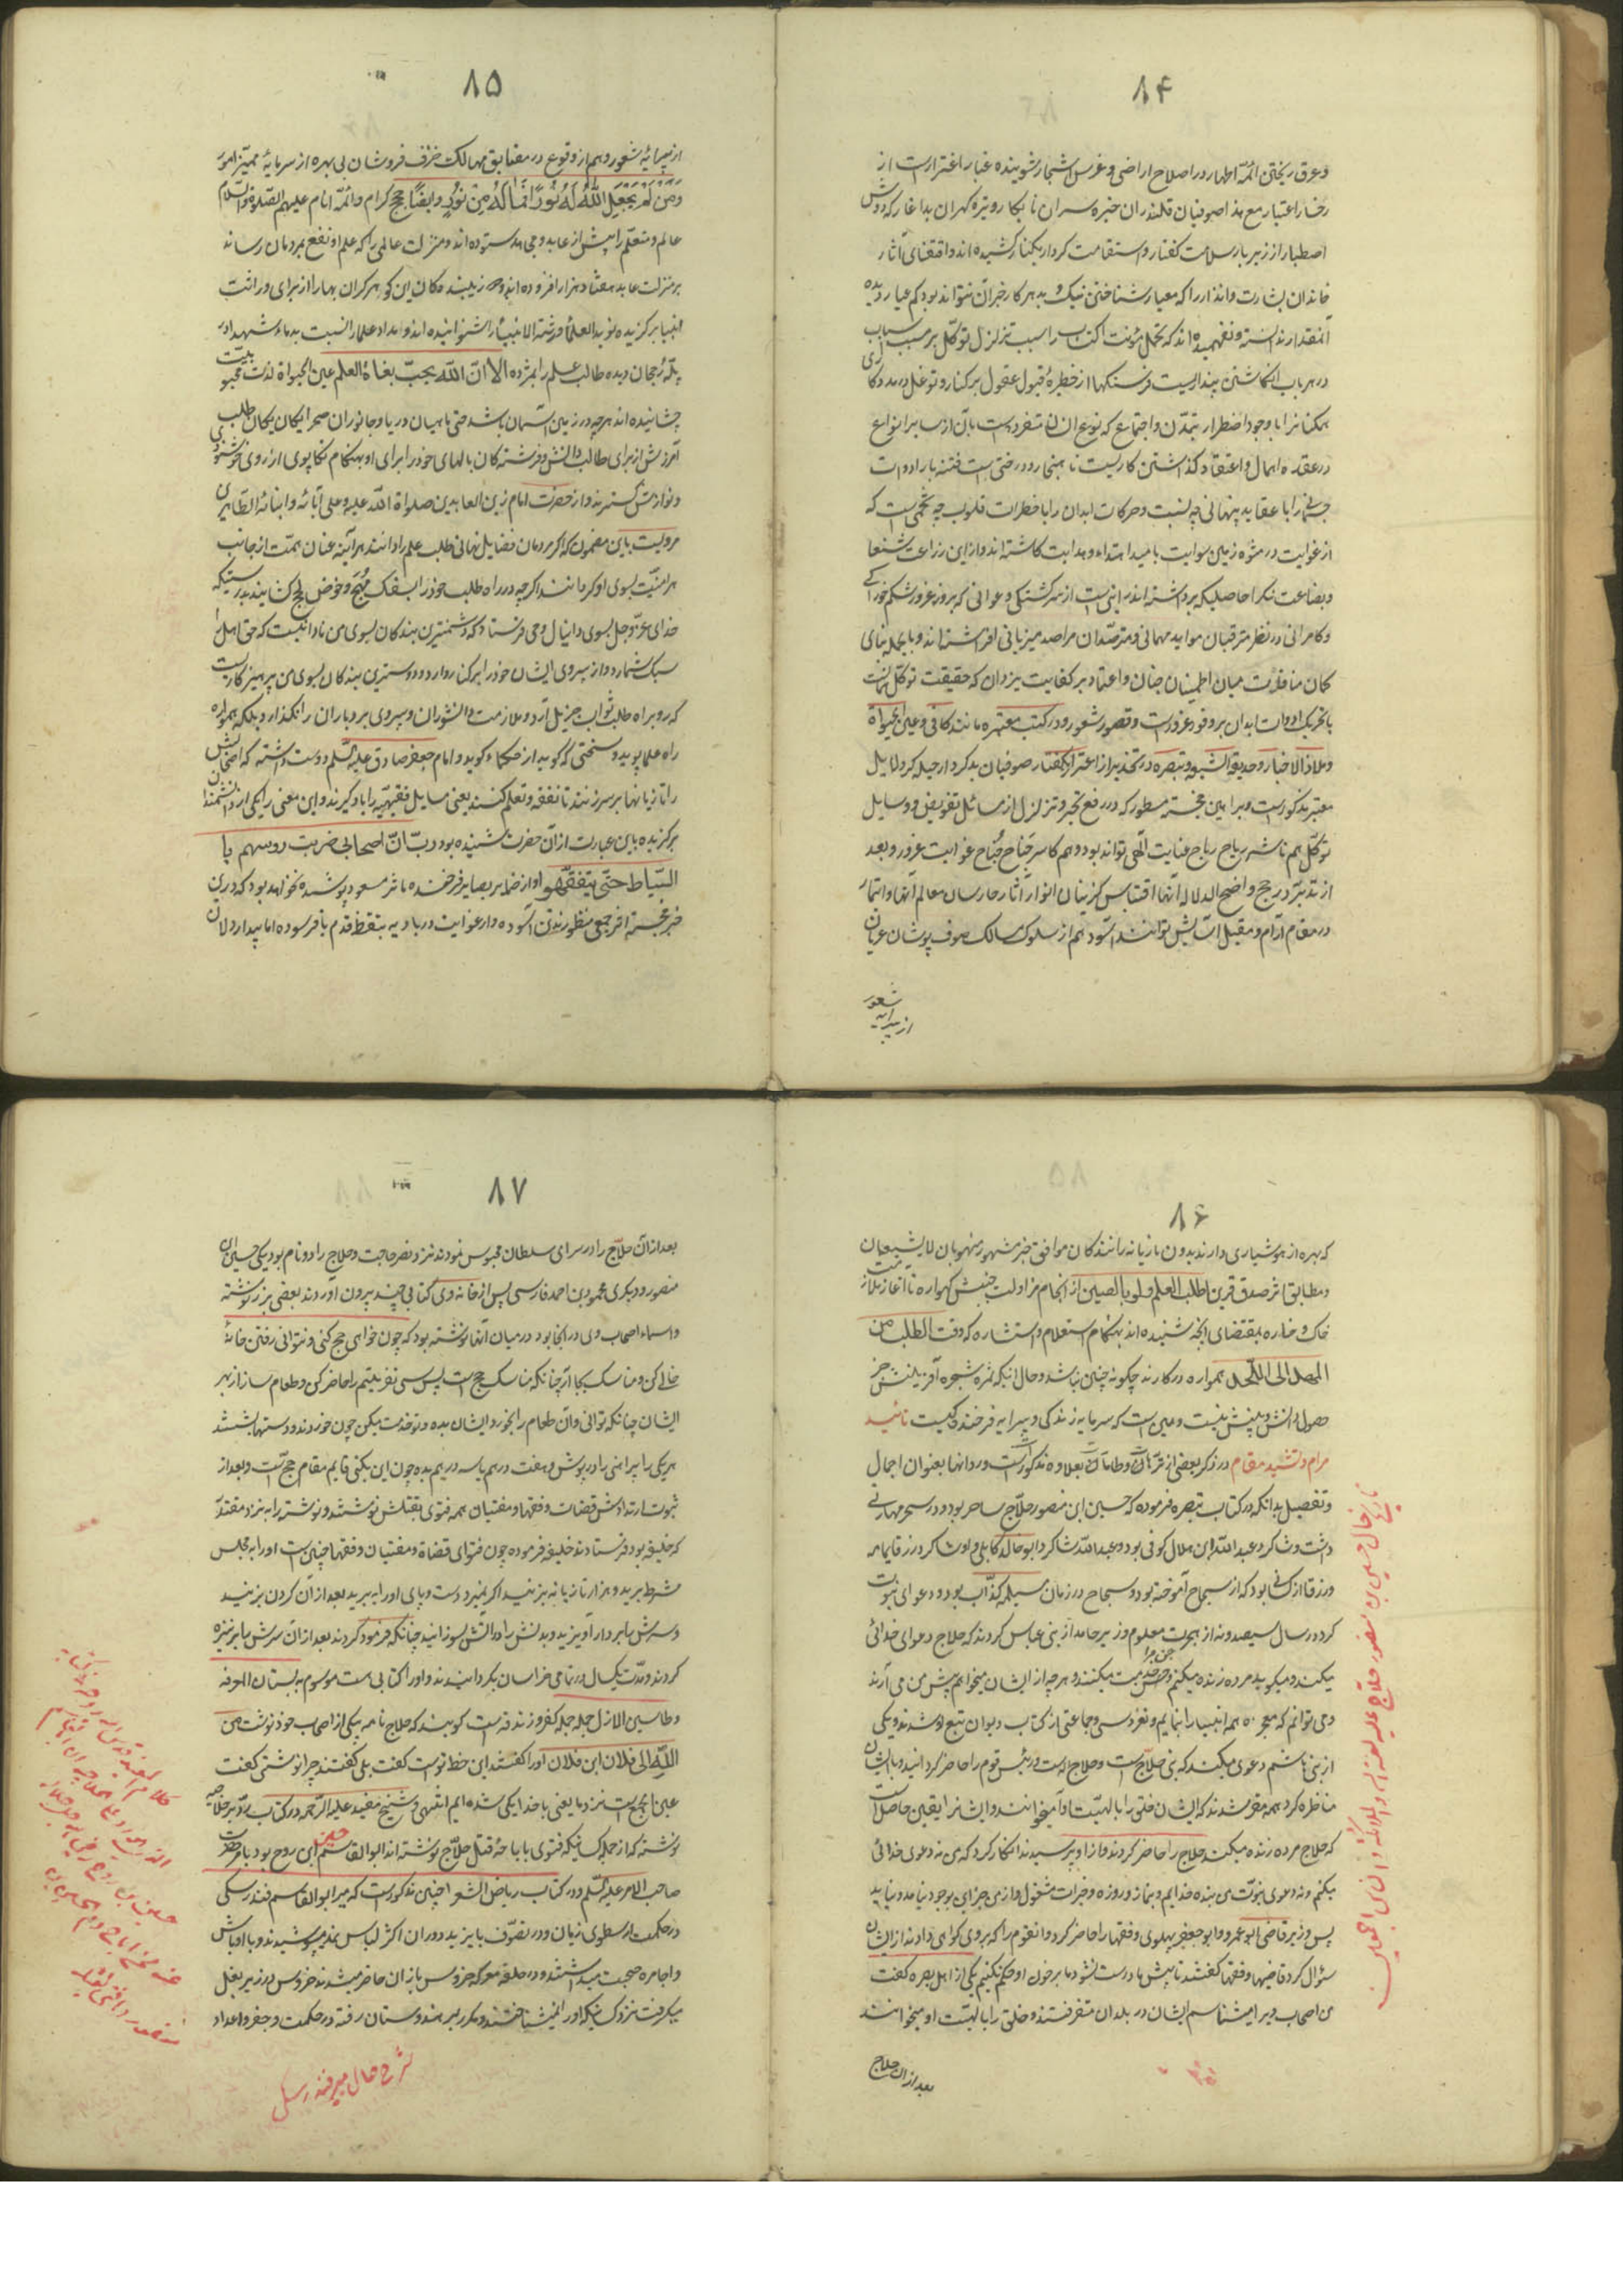 ۸۴
وعرق ریختن ائمّه اطهار در اصلاح اراضی و غرس اشجار شوینده غبار اغترارست از
رخسار اعتبار مع هذا صوفیان قلندران خیره سران نابکار و تیره گهران بداغار که دوش
اصطبار از زیر بار سلامت گفتار و استقامت کردار بکنار کشیده اند و اقتفای آثار
خاندان بشارت و انذار را که معیار شناختن نیک و بد هر کار جز آن نتواند بود کم عیار دیده
آنمقدار ندانسته و نفهمیده اند که تحمل مؤنت اکتساب را سبب تزلزل توکل بر مسبب الاسباب
در هر باب انگاشتن پنداریست فرسنگها از خطیرهٔ قبول عقول بر کنار و توغل در مددکاری
همکنانرا با وجود اضطرار بتمدّن و اجتماع که نوع انسان متفرد است بآن از سایر انواع
در عقده اهمال و اعتقاد گذاشتن کاریست ناهنجار و درختی است فتنه بار ادوات
جسمانی را با عقاید پنهانی چه نسبت و حرکات ابدان را با خطرات قلوب چه تخمی است که
از غوایت در مثوه زمین سوایت بامید اهتداء و هدایت کاشته اند و از این زراعت شنعا
و بضاعت نکرا حاصلیکه برداشته اند اینی است از سرگشتگی و عوانی که بروز غرور شکم خوارگی
و کامرانی در نظر مترقبان مواید مهمانی و مترصدان مراصد میزبانی افراشته اند و بالجمله بنای
گمان منافات میان اطمینان جنان و اعتماد بر کفایت یزدان که حقیقت توکل همانست
با تحریک ادوات ابدان بر وفور غرورست و قصور شعور و در کتب معتبره مانند کافی و عین الحیوة
و ملاذ الاخیار و حدیقة الشیعه و تبصره در تحذیر از اغترار بگفتار صوفیان بدکردار حیله گر دلایل
معتبر مذکورست و براهین خجسته مسطور که در رفع تحیر و تزلزل از مسائل تفویض و وسایل
توکل هم ناشر ریاح رباح عنایت الهی تواند بود و هم کاسر جناح جُناح غوایت غرور و بعد
از تدبّر در حجج واضح الدلاله آنها اقتباس گزینان انوار آثار حارسان معالم آنها و ایتمار
در مقام آرام و مقیل آسایش توانند آسود هم از سلوک مسالک صوف پوشان عریان
از پیرایه شعور
۸۵
از پیرایهٔ شعور و هم از وقوع در مضایق مهالک خزف فروشان بی بهره از سرمایهٔ ممیّز امور
وَمَن لَم یَجعَلِ اللّهُ لَهُ نُورًا فَمَا لَهُ مِن نُورٍ و ایضًا حجج کرام و ائمّه انام علیهم الصّلوة والسّلام
عالم و متعلّم را پیش از عابد و مجاهد ستوده اند و منزلت عالمی را که علم او نفع بمردمان رساند
بر منزلت عابد هفتاد هزار افزوده اند و زیبنده مکان این گوهر گران بها را از برای وراثت
انبیا برگزیده نوید العلمأ ورثة الانبیأ را شنوانیده اند و مداد علما را نسبت بدماء شهدا در
پلّهٔ رجحان دیده طالب علم را بمژده الا انّ اللّه یحبّ بغاة العلم عین الحیوة لذت محبوبیت
چشانیده اند هر چه در زمین و آسمان باشد حتی ماهیان دریا و جانوران صحرا یکان یکان طلب
آمرزش از برای طالب دانش و فرشتگان بالهای خود را برای او بهنگام تکاپوی از روی خوشنودی
و نوازش گسترند و از حضرت امام زین العابدین صلواة اللّه علیه و علی آبائه و ابنائه الطّاهرین
مرویست باین مضمون که اگر مردمان فضایل نهانی طلب علم را دانند هر آینه عنان همّت از جانب
هر امنیّت بسوی او گردانند اگر چه در راه طلب خود را بسفک مُهَج و خوض لجج کشانیده بدرستیکه
خدای عزّوجل بسوی دانیال وحی فرستاد که دشمنترین بندگان بسوی من نادانیست که حق اهل علم را
سبک شمارد و از پیروی ایشان خود را بر کنار دارد و دوستترین بندگان بسوی من پرهیزکاریست
که رو براه طلب ثواب جزیل آرد و ملازمت دانشوران و پیروی بردباران را نگذارد بلکه همواره
راه علما پوید و سخنی که گوید از حکماء گوید و امام جعفر صادق علیه السّلم دوست داشته که اصحابش
را تازیانها بر سر زنند تا تفقّه و تعلم کنند یعنی مسایل فقهیّه را یاد گیرند و این معنی را یکی از دانشمندان
برگزیده باین عبارت از آن حضرت شنیده بود ودتّ انّ اصحابی ضربت رؤسهم با
السّیاط حتّی یتفقّهوا و از ضمایر بصایر فرخنده مآثر مسعود پوشیده نخواهد بود که در این
خبر خجسته اثر جمعی منظورند تن آسوده و از غوایت در بادیه بتقط قدم نافرسوده اما بیدار دلان
۸۶
که بهره از هوشیاری دارند بدون تازیانه رانندگان موافق خبر مشهور منهومان لا یشبعان
و مطابق اثر صدق قرین اطلب العلم ولو بالصین از انجام مزاولت جنبش گهواره تا آغاز ملازمت
خاک و خاره بمقتضای آنچه شنیده اند بهنگام استعلام و استشاره که وقت الطلب من
المهد الی اللّحد همواره در کارند چگونه چنین نباشد و حال آنکه ثمره شجره آفرینش جز
حصول دانش و بینش نیست و همین است که سرمایه زندگی و پیرایه فرخندگیست تائید
مرام و تشیید مقام در ذکر بعضی از ترّهات و طامات بعلاوه مذکورست و ردّ آنها بعنوان اجمال
و تفصیل بدانکه در کتاب تبصره فرموده که حسین ابن منصور حلّاج ساحر بود و در سحر مهارتی
داشت و شاگرد عبداللّه ابن هلال کوفی بود و عبداللّه شاگرد ابو خالد کابلی و او شاگرد زرقا یمامه
و زرقا از آنها بود که از سجاح آموخته بود و سجاح در زمان مسیلمه کذّاب بود و دعوای نبوّت
کرد در سال سیصد و نه از هجرت معلوم وزیر حامد از بنی عباس کردند که حلاج دعوای خدائی
میکند و میگوید مرده زنده میکنم و جن خدمت میکنند و هر چه از ایشان میخواهم پیش من می آرند
جن مرا
و می توانم که معجزه همه انبیا را بنمایم و نفر دسی و جماعتی از کتاب دیوان تبع او شدند و یکی
از بنی هاشم دعوی میکند که نبی حلّاج است و حلاج الهست وزیر این قوم را حاضر گردانید و با ایشان
مناظره کرد همه مقر شدند که ایشان خلق را بالهیّت او میخوانند و ایشانرا یقین حاصلست
که حلاج مرده زنده میکند حلاج را حاضر کردند و از او پرسیدند انکار کرد که من نه دعوی خدائی
میکنم و نه دعوی نبوّت من بنده خدایم و بنماز و روزه و خیرات مشغول و از من جز این بوجود نیامد و نیاید
پس وزیر قاضی ابو عمرو و ابو جعفر بهلول و فقها را حاضر کرد و آنقوم را که بر وی گواهی داد نه از ایشان
سؤال کرد قاضیها و فقها گفتند تا پیش ما درست نشود ما بر خون او حکم نکنیم یکی از اهل بصره گفت
من اصحاب ویرا میشناسم ایشان در بلدان متفرقتند و خلق را بالهیّت او میخوانند
بعد از آن حلاج
تاریخ حال حسین بن منصور حلاج علیه لعنة اللّه و الملائکة و الناس اجمعین
۸۷
بعد از آن حلّاج را در سرای سلطان محبوس نمودند نزد نصر حاجب و حلّاج را دو نام بود یکی حسین ابن
منصور و دیگری محمود بن احمد فارسی پس از خانه وی کتابی چند بیرون آوردند بعضی بزر نوشته
و اسماء اصحاب وی در آنجا بود در میان آنها نوشته بود که چون خواهی حج کنی و نتوانی رفتن خانهٔ
خالی کن و مناسک بجا آر چنانکه مناسک حج است پس سی نفر یتیم را حاضر کن و طعام ساز از بهر
ایشان چنانکه توانی و آن طعام را بخورد ایشان بده و تو خدمت میکن چون خوردند و دستها شستند
هر یکی را پیراهنی را در پوش و هفت درهم یا سه درهم بده چون این بکنی قایم مقام حج تست و بعد از
ثبوت ارتدادش قضات و فقها و مفتیان همه فتوی بقتلش نوشتند و نوشته را به نزد مقتدر
که خلیفه بود فرستادند خلیفه فرموده چون فتوای قضاة و مفتیان و فقها چنین است او را به مجلس
شرطه برید و هزار تازیانه بزنید اگر نمیرد دست و پای او را ببرید بعد از آن گردن بزنید
و سرش را بردار آویزید و بدنش را در آتش بسوزانید چنانکه فرمود کردند بعد از آن سرش را بر نیزه
کردند و مدّت یکسال در تمامی خراسان بگردانیدند و او را کتابی هست موسوم به بستان المعرفه
و طاسین الازل جمله جمله کفر و زندقه است گویند که حلاج نامه بیکی از اصحاب خود نوشت من
اللّه الی فلان ابن فلان او را گفتند این خط تو است گفت بلی گفتند چرا نوشتی گفت
عین الجمع است نزد ما یعنی با خدا یکی شده ایم انتهی و شیخ مفید علیه الرّحمه در کتاب ردّ بر حلاجیه
نوشته که از جمله کسانیکه فتوی باباحهٔ قتل حلّاج نوشته اند ابو القاسم حسین ابن روح بود بامر حضرت
صاحب الامر علیه السّلم و در کتاب ریاض الشعرا چنین مذکورست که میرابوالقاسم فندرسکی
در حکمت ارسطوی زمان و در تصوّف بایزید دوران اکثر لباس نمد میپوشیدند و با اوباش
و اجامره صحبت میداشتند و در حلقه معرکه خروس بازان حاضر میشدند خروس در زیر بغل
میگرفت نزدیک بیکه او را نمیشناختند و مکرر بر هندوستان رفته در حکمت و جفر و اعداد
شرح حال میر فندرسکی